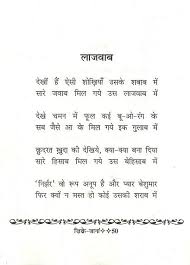 लाजवाब
देखीं हैं ऐसी शोख़ियाँ उसके शबाब में
सारे जवाब मिल गये उस लाजवाब में
देखे चमन में फूल कई बू-ओ-रंग के
सब जैसे आ के मिल गये इक गुलाब में
क़ुदरत ख़ुदा की देखिये, क्या-क्या बना दिया
सारे हिसाब मिल गये उस बेहिसाब में
'निर्झर' वो रूप अनूप है और प्यार बेशुमार
फिर क्यों न मस्त हो कोई उसकी शराब में
ज़िक्रे-जानाँ 50